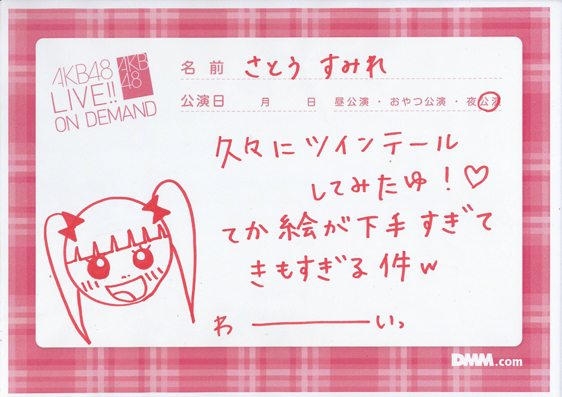 AKB48
LIVE!!
ON DEMAND
AKB
48
名前 さとう すみれ
公演日 月 日 昼公演・おやつ公演・夜公演
久々にツインテール
してみたゆ！♡
てか絵が下手すぎて
きもすぎる件w
わ――――いっ
DMM.com